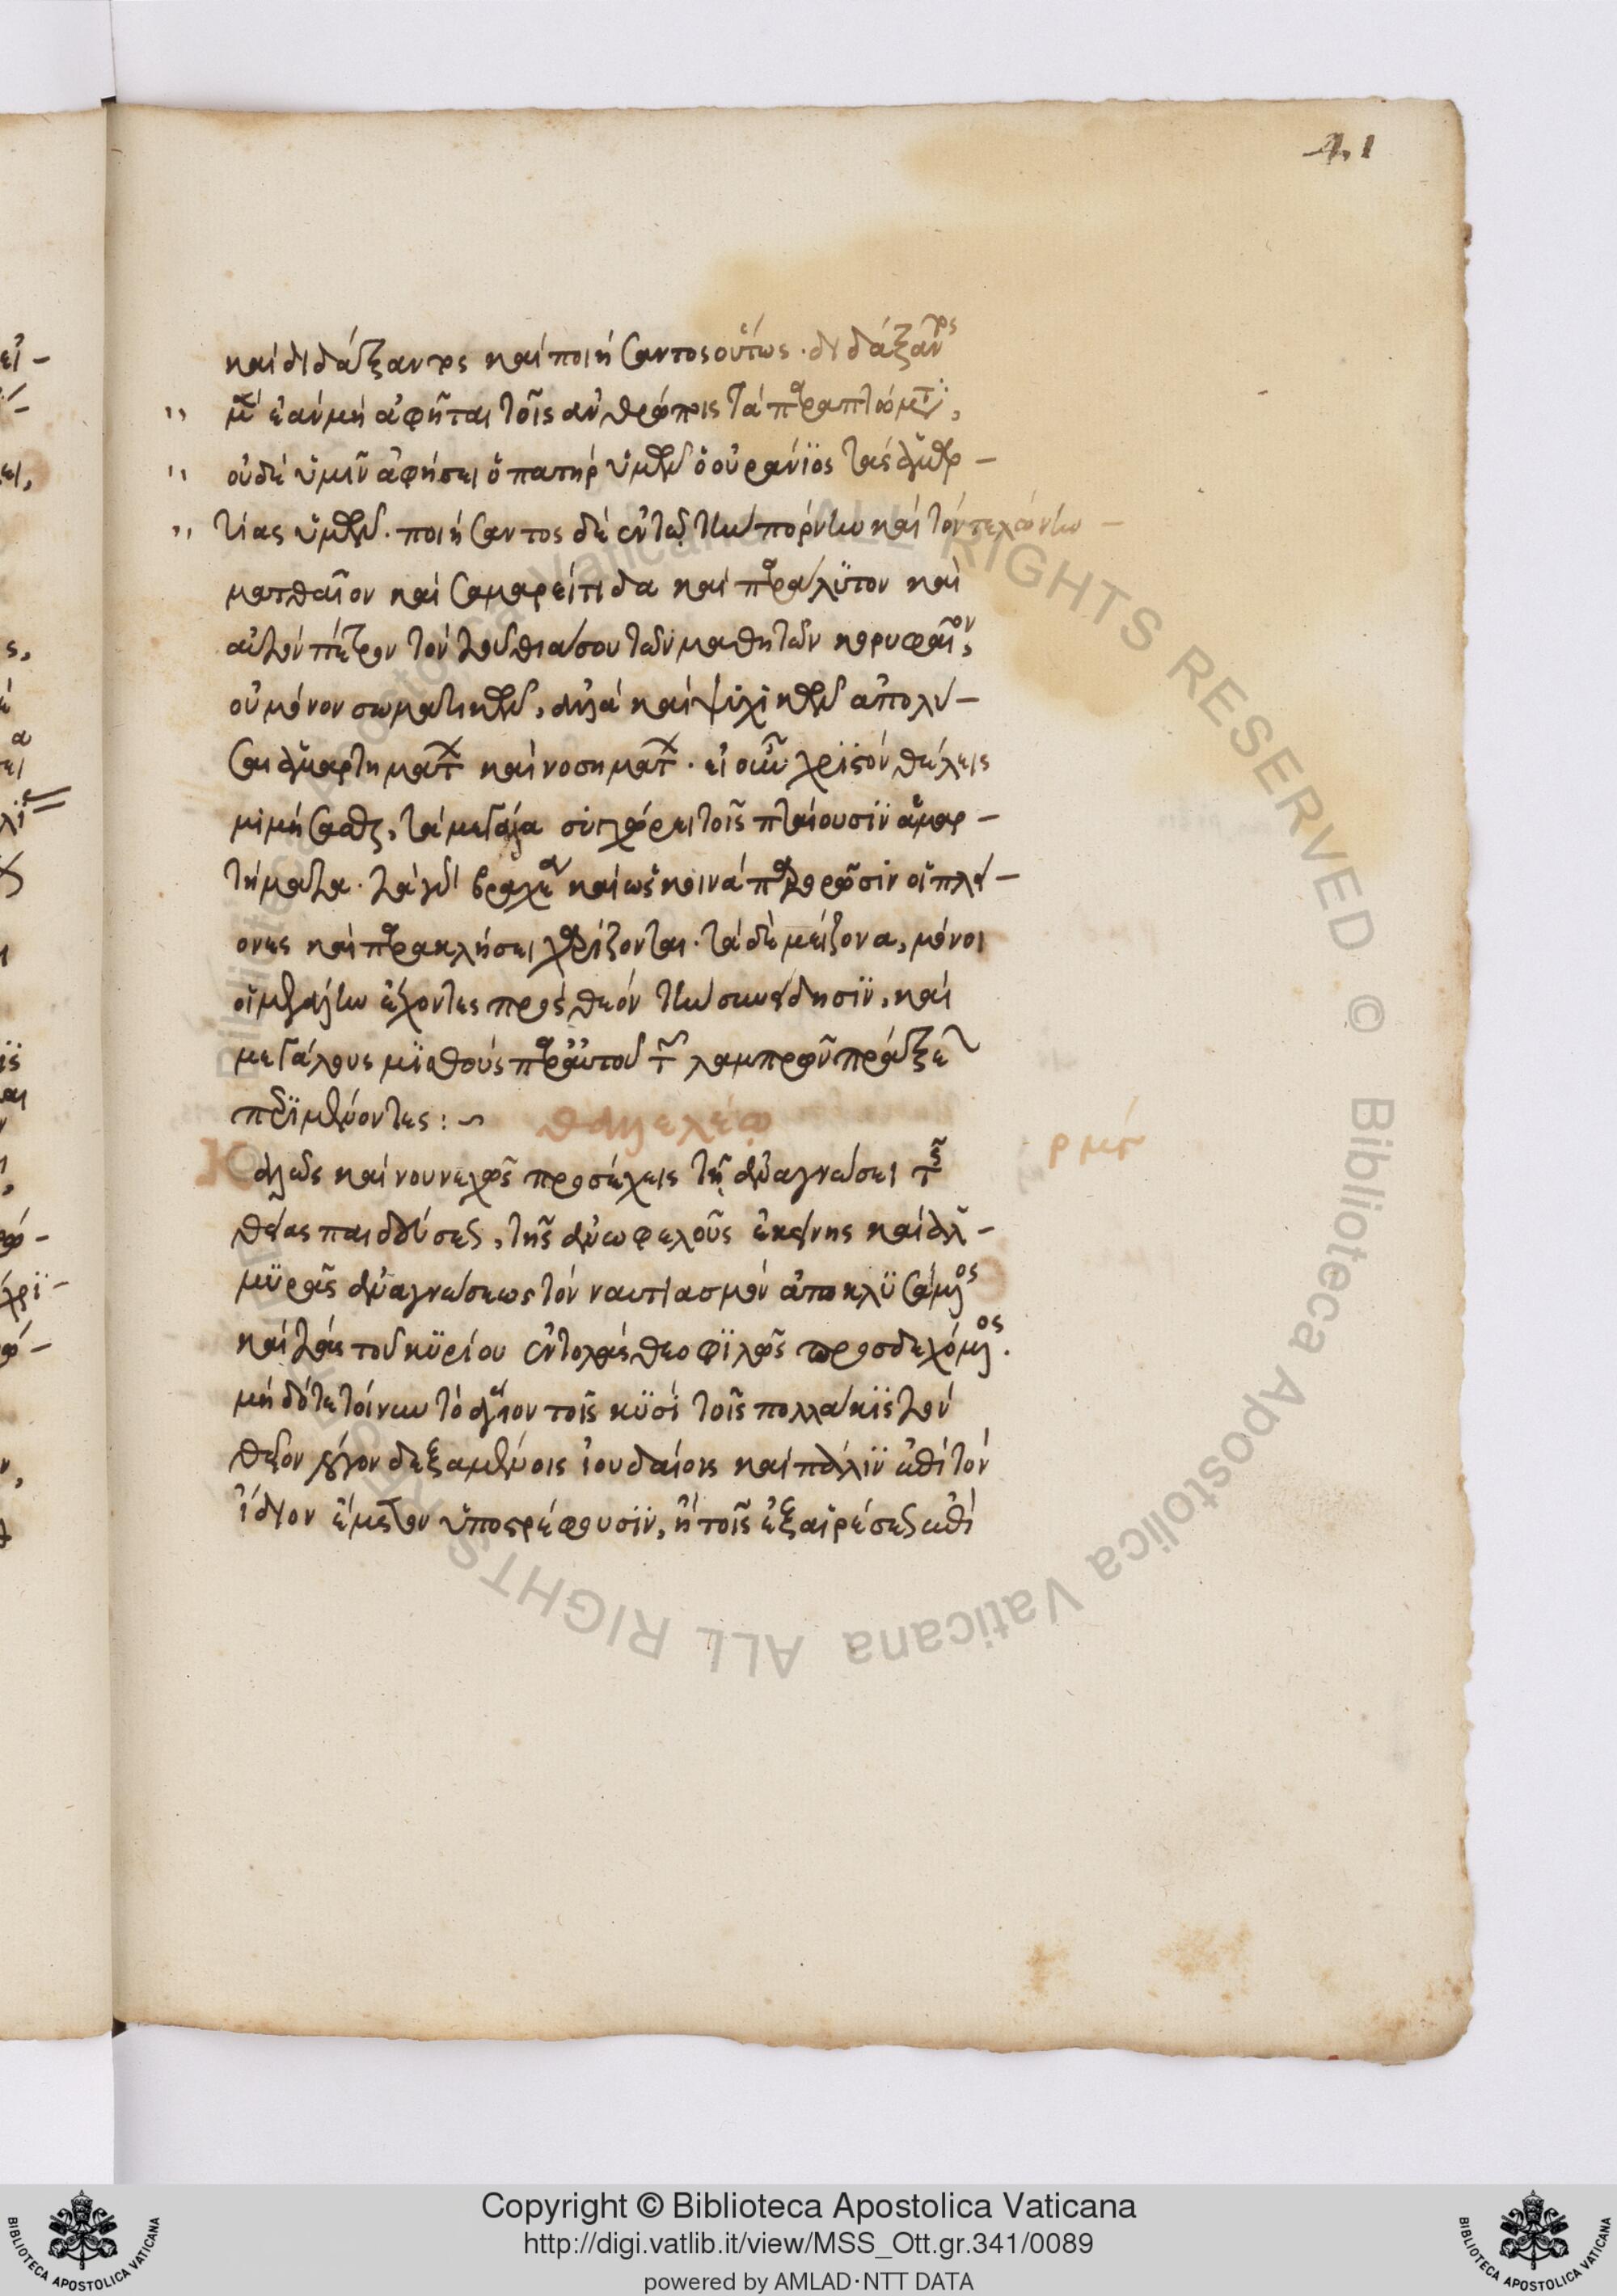 41
καὶ διδάξαντος καὶ ποιήσαντος οὕτως · διδάξαντος
μὲν ἐὰν μὴ ἀφῆται τοῖς ἀνθρώποις τὰ παραπτώματα,
οὐδὲ ὑμῖν ἀφήσει ὁ πατὴρ ὑμῶν ὁ οὐράνϊος τὰς ἁμαρ –
τίας ὑμῶν · ποιήσαντος δὲ ἐν τῷ τὴν πόρνην καὶ τὸν τελώνην –
ματθαῖον καὶ σαμαρείτιδα καὶ παράλϋτον καὶ
αὐτὸν πέτρον τὸν τοῦ θιάσου τῶν μαθητῶν κορυφαῖον,
οὐ μόνον σωματικῶν, ἀλλὰ καὶ ψυχικῶν ἀπολῦ –
σαι ἁμαρτημάτων καὶ νοσημάτων · εἰ οὖν χρϊστὸν θέλεις
μιμήσασθαι, τὰ μεγάλα συγχώρει τοῖς πταίουσϊν ἁμαρ –
τήματα · τὰ γὰρ βραχέα καὶ ὡς κοινὰ παρορῶσιν οἱ πλεί –
ονες καὶ παρακλήσει χαρίζονται · τὰ δὲ μείζονα, μόνοι
οἱ μεγάλην ἔχοντες πρὸς θεὸν τὴν συνείδησϊν, καὶ
μεγάλους μϊσθοὺς παρ' αὐτοῦ τῶν λαμπρῶν πράξεων
περϊμένοντες :
θαλελέῳ
ρμς
Καλῶς καὶ νουνεχῶς προσέχεις τῇ ἀναγνώσει τῆς
θείας παιδεύσεως, τῆς ἀνωφελοῦς ἐκείνης καὶ ἁλ –
μϋρᾶς ἀναγνώσεως τὸν ναυτιασμὸν ἀποκλϋσάμενος
καὶ τὰς τοῦ κϋρίου ἐντολὰς θεοφϊλῶς προσδεχόμενος.
μὴ δότε τοίνυν τὸ ἅγιον τοῖς κϋσὶ τοῖς πολλάκϊς τὸν
θεῖον λόγον δεξαμένοις ἰουδαίοις καὶ πάλϊν ἐπὶ τὸν
ἴδιον ἔμετον ὑποστρέφουσϊν, ἢ τοῖς ἐξ αἱρέσεως ἐπὶ
Copyright © Biblioteca Apostolica Vaticana
http://digi.vatlib.it/view/MSS_Ott.gr.341/0089
powered by AMLAD·NTT DATA
BIBLIOTECA APOSTOLICA VATICANA
BIBLIOTECA APOSTOLICA VATICANA
Biblioteca Apostolica Vaticana ALL RIGHTS RESERVED ©